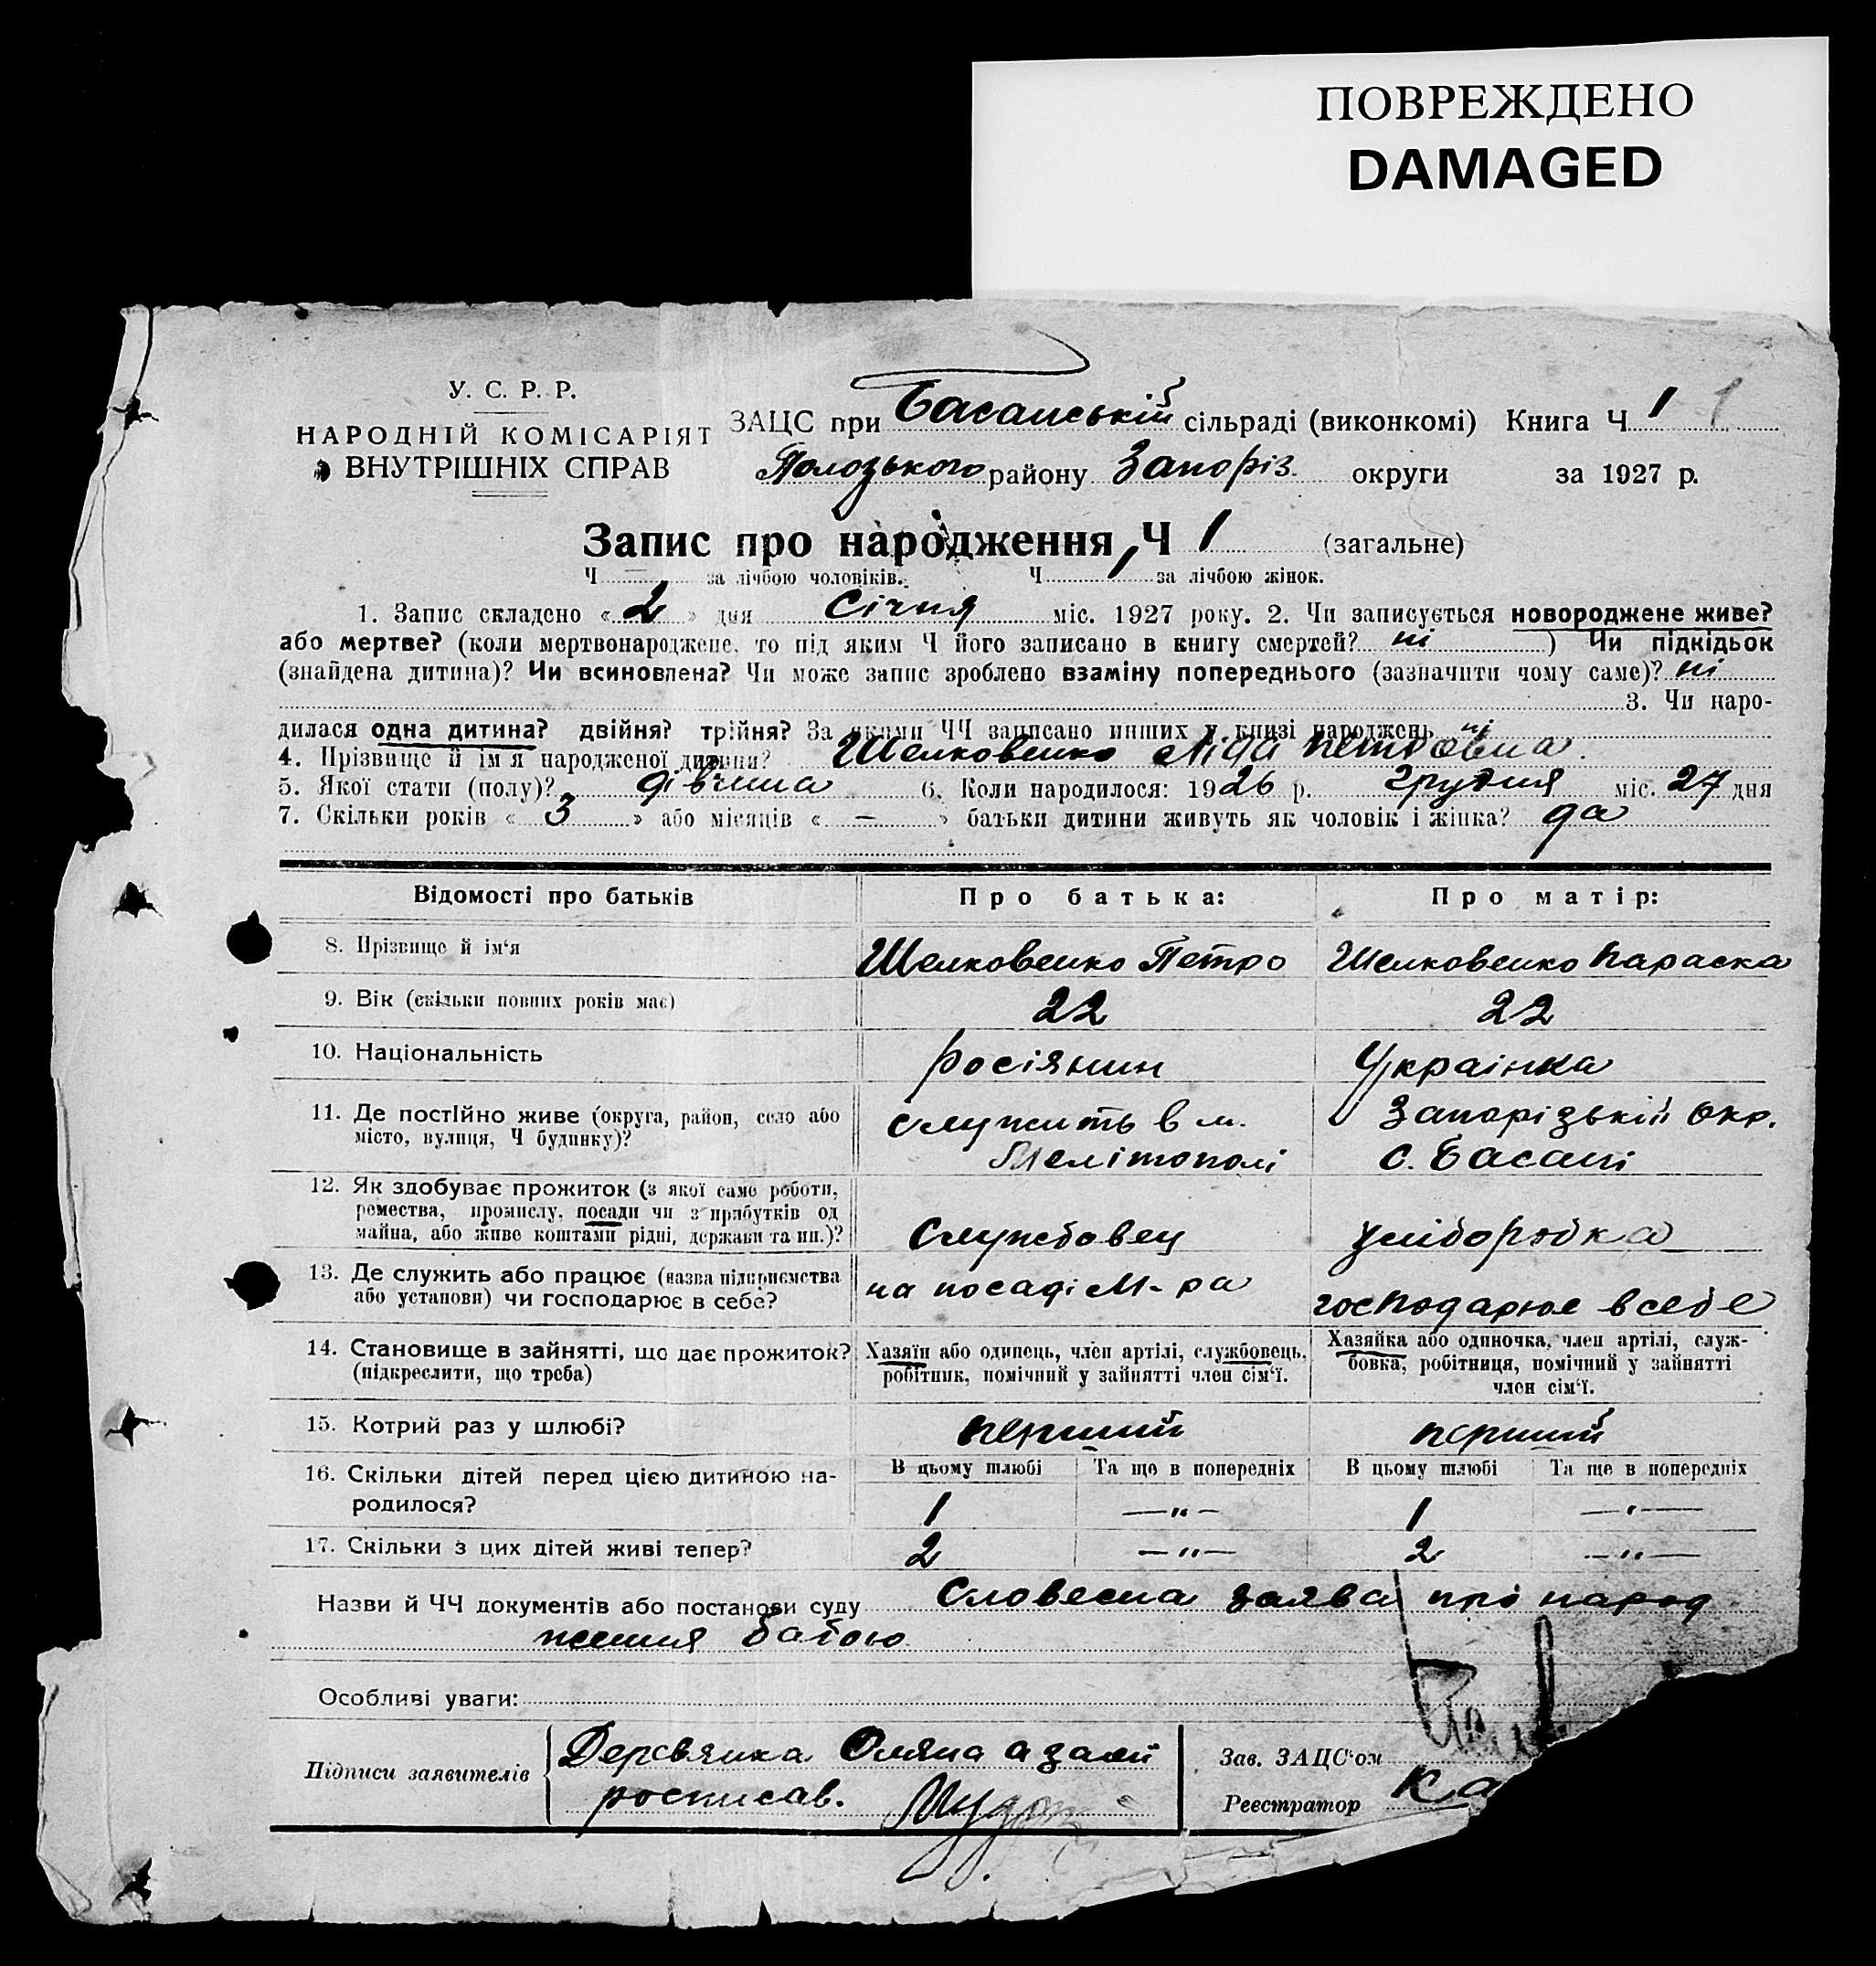 ПОВРЕЖДЕНО
DAMAGED
У. С. Р. Р.
НАРОДНІЙ КОМІСАРІЯТ
ВНУТРІШНІХ СПРАВ
ЗАЦС при Басанській сільраді (виконкомі) Книга Ч 1 1
Полозького району Запоріз. округи за 1927 р.
Запис про народження Ч 1 (загальне)
Ч — за лічбою чоловіків. Ч 1 за лічбою жінок.
1. Запис складено «2» дня Січня міс. 1927 року. 2. Чи записується новороджене живе?
або мертве? (коли мертвонароджене, то під яким Ч його записано в книгу смертей? ні ) Чи підкідьок
(знайдена дитина)? Чи всиновлена? Чи може запис зроблено взаміну попереднього (зазначити чому саме)? ні
3. Чи наро-
дилася одна дитина? двійня? трійня? За якими ЧЧ записано инших у книзі народжень ні
4. Прізвище й ім'я народженої дитини? Шелковенко Ліда Петровна.
5. Якої стати (полу)? дівчина 6. Коли народилося: 1926 р. грудня міс. 27 дня
7. Скільки років «3» або місяців «—» батьки дитини живуть як чоловік і жінка? да
Відомості про батьків Про батька: Про матір:
8. Прізвище й ім'я Шелковенко Петро Шелковенко Параска
9. Вік (скільки повних років має) 22 22
10. Національність росіянин Українка
11. Де постійно живе (округа, район, село або
місто, вулиця, Ч будинку)?
служить в м.
Мелітополі
Запорізькій окр.
с. Басані
12. Як здобуває прожиток (з якої саме роботи,
ремества, промислу, посади чи з прибутків од
майна, або живе коштами рідні, держави та ин.)?
Службовец
хліборобка
13. Де служить або працює (назва підприємства
або установи) чи господарює в себе?
на посаді М-ра
господарює в себе
14. Становище в зайнятті, що дає прожиток?
(підкреслити, що треба)
Хазяїн або одинець, член артілі, службовець,
робітник, помічний у зайнятті член сім'ї.
Хазяйка або одиночка, член артілі, служ-
бовка, робітниця, помічний у зайнятті
член сім'ї.
15. Котрий раз у шлюбі? перший перший
16. Скільки дітей перед цією дитиною на-
родилося?
В цьому шлюбі Та ще в попередніх В цьому шлюбі Та ще в попередніх
1 —"— 1 —"—
17. Скільки з цих дітей живі тепер? 2 —"— 2 —"—
Назви й ЧЧ документів або постанови суду Словесна заява про народ
ження бабою
Особливі уваги:
Підписи заявителів
Деревянка Оляна а за неї
росписав.
Зав. ЗАЦС'ом
Реєстратор Ка